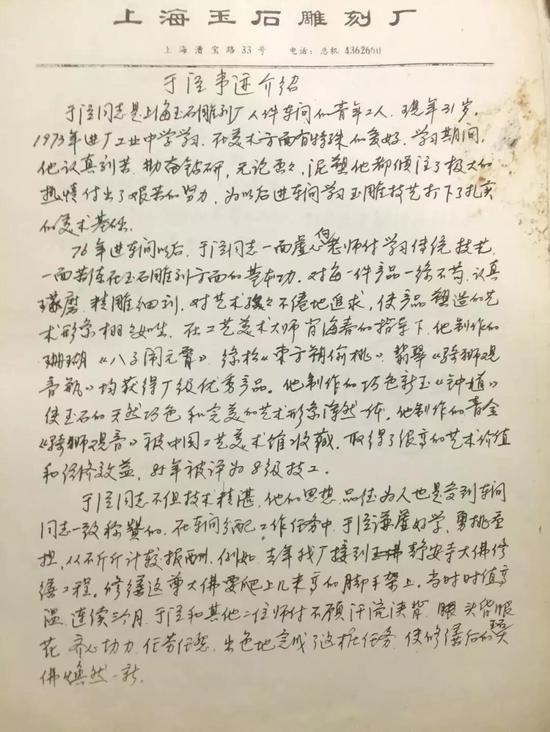 上海玉石雕刻厂
上海漕宝路33号 电话：总机 4362660
于泾事迹介绍
于泾同志是上海玉石雕刻厂人件车间的青年工人，现年31岁。
1973年进厂工业中学学习，在美术方面有特殊的爱好，学习期间，
他认真刻苦，勤奋钻研，无论 泥塑他都倾注了极大的
热情付出了艰苦的努力，为以后进车间学习玉雕技艺打下了扎实
的美术基础。
76年进车间以后，于泾同志一面虚心向老师付学习传统技艺，
一面苦练在玉石雕刻方面的基本功。对每一件产品一丝不苟，认真
琢磨，精雕细刻，对艺术孜孜不倦地追求，使产品塑造的艺
术形象栩栩如生。在工艺美术大师肖海春的指导下，他制作的
珊瑚《八子闹元宵》、绿松《东方朔偷桃》、翡翠《骑狮观
音瓶》均获得厂级优秀产品。他制作的巧色新玉《钟馗》
使玉石的天然巧色和完美的艺术形象浑然一体。他制作的青金
《骑狮观音》被中国工艺美术馆收藏，取得了很高的艺术价值
和经济效益，84年被评为8级技工。
于泾同志不但技术精湛，他的思想、品德为人也是受到车间
同志一致称赞的。在车间分配工作任务中，于泾谦虚好学，勇挑重
担，从不斤斤计较报酬。例如：去年我厂接到玉佛静安寺大佛修
缮工程。修缮这尊大佛要爬上几米高的脚手架上，当时时值高
温，连续三个月，于泾和其他二位师付不顾汗流浃背，腰头昏眼
花，齐心协力，任劳任怨，出色地完成了这桩任务，使修缮后的
佛焕然一新。